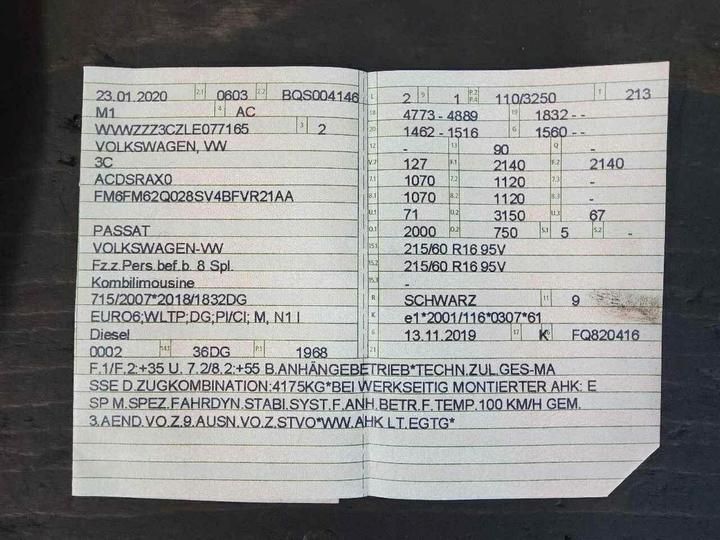 23.01.2020 2.1 0603 2.2 BQS004146
M1 4 AC
WVWZZZ3CZLE077165 3 2
VOLKSWAGEN, VW
3C
ACDSRAX0
FM6FM62Q028SV4BFVR21AA
PASSAT
VOLKSWAGEN-VW
Fz.z.Pers.bef.b. 8 Spl.
Kombilimousine
715/2007*2018/1832DG
EURO6;WLTP;DG;PI/CI; M, N1 I
Diesel
0002 14.1 36DG P.1 1968
L 2 9 1 P.2 P.4 110/3250 T 213
18 4773 - 4889 19 1832 - -
20 1462 - 1516 G 1560 - -
12 - 13 90 Q -
V.7 127 F.1 2140 F.2 2140
7.1 1070 7.2 1120 7.3 -
8.1 1070 8.2 1120 8.3 -
U.1 71 U.2 3150 U.3 67
O.1 2000 O.2 750 S.1 5 S.2 -
15.1 215/60 R16 95V
15.2 215/60 R16 95V
15.3 -
R SCHWARZ 11 9
K e1*2001/116*0307*61
6 13.11.2019 17 K 16 FQ820416
21
F.1/F.2:+35 U. 7.2/8.2:+55 B.ANHÄNGEBETRIEB*TECHN.ZUL.GES-MA
SSE D.ZUGKOMBINATION:4175KG*BEI WERKSEITIG MONTIERTER AHK: E
SP M.SPEZ.FAHRDYN.STABI.SYST.F.ANH.BETR.F.TEMP.100 KM/H GEM.
3.AEND.VO.Z.9.AUSN.VO.Z.STVO*WW.AHK LT.EGTG*